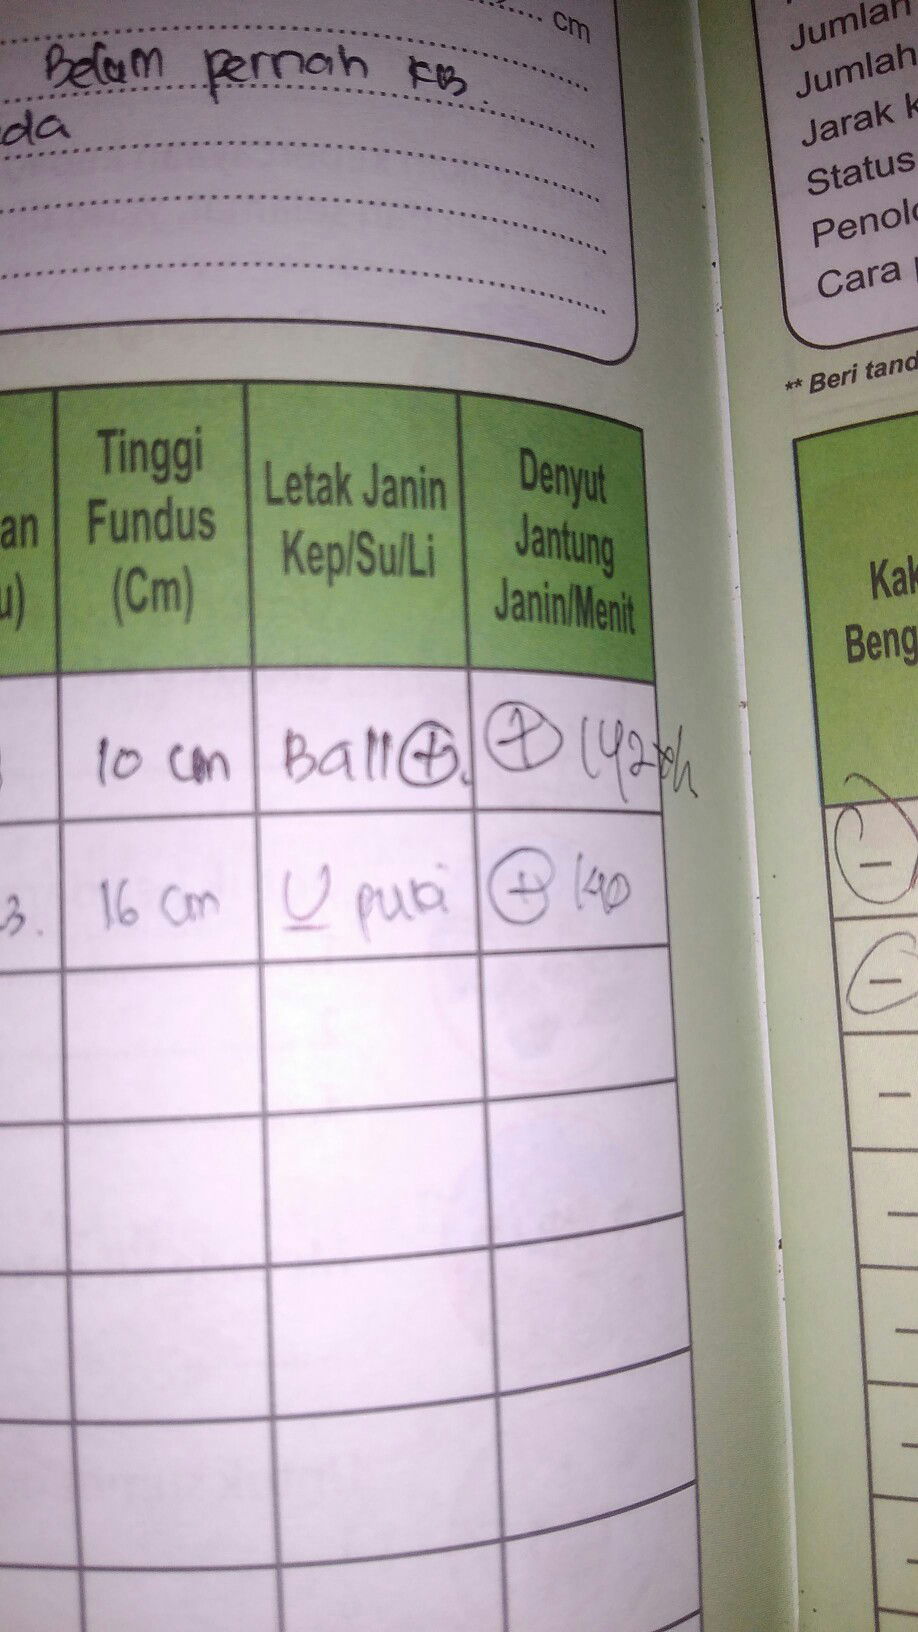 cm
Belum pernah KB
da
Jumlah
Jumlah
Jarak k
Status
Penolo
Cara
** Beri tand
an
u)
Tinggi
Fundus
(Cm)
Letak Janin
Kep/Su/Li
Denyut
Jantung
Janin/Menit
Kak
Beng
10 cm Ball(+). (+) 142x/
3. 16 cm U (+) 140
(-)
(-)
-
-
-
-
-